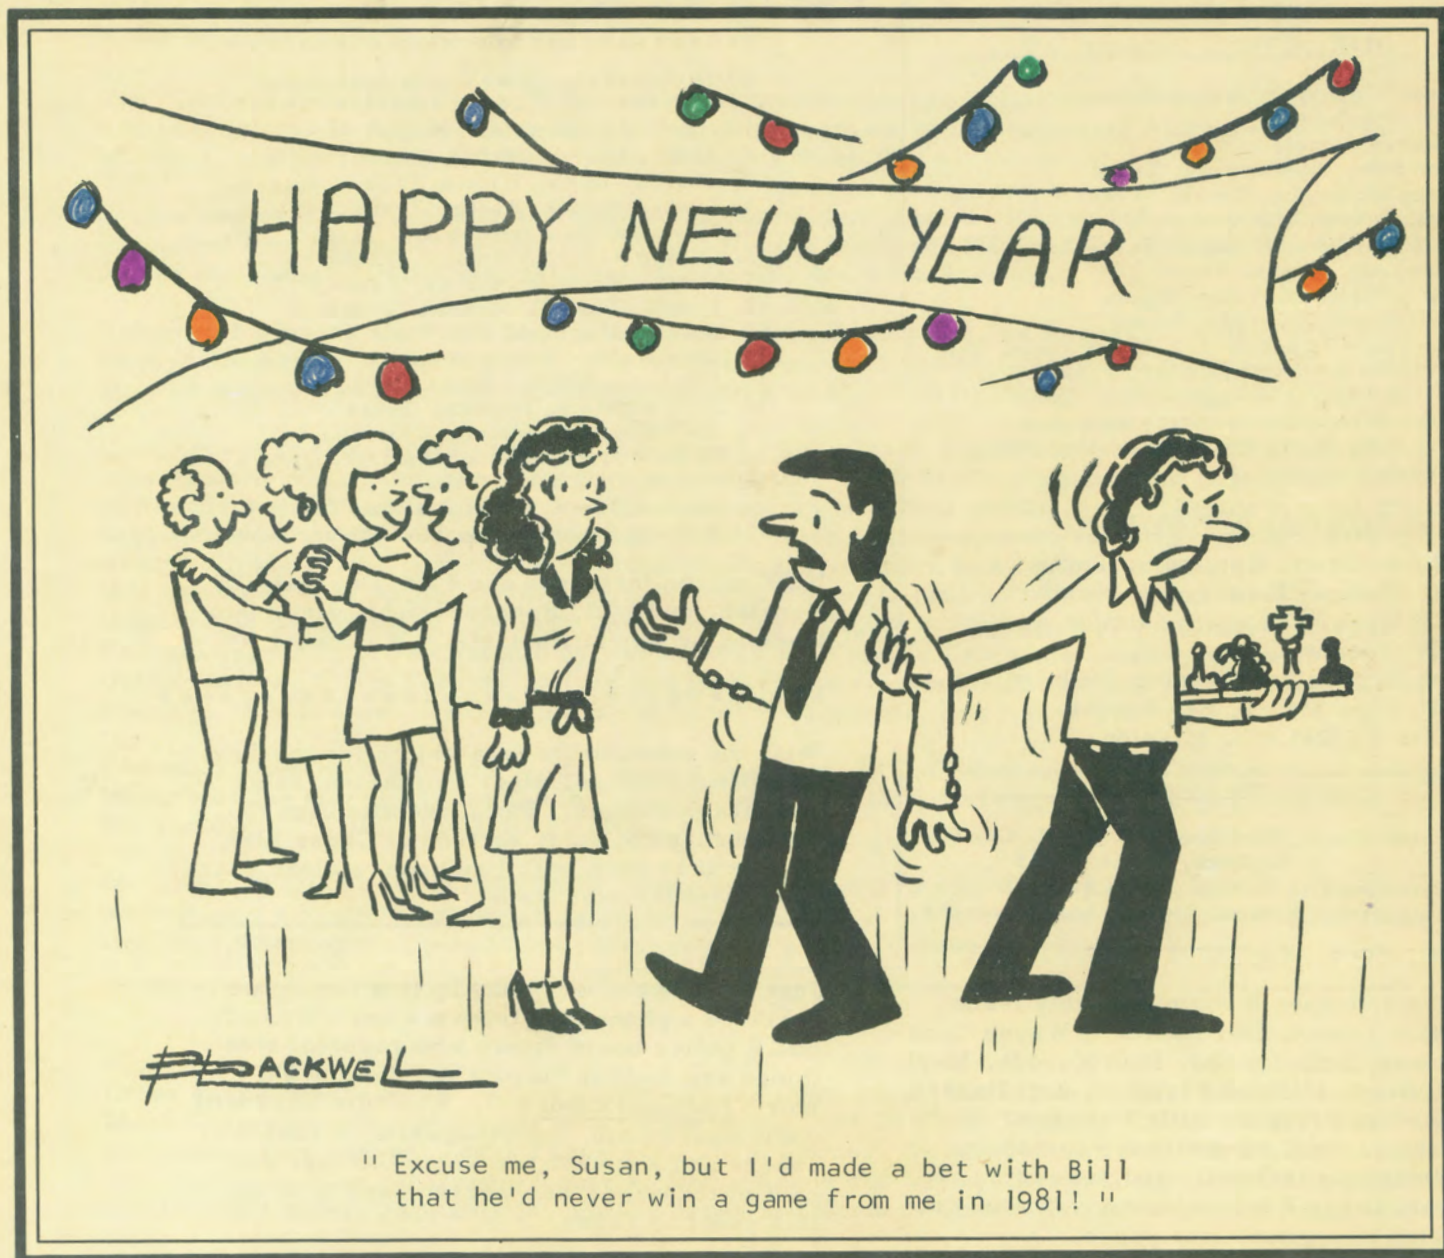 HAPPY NEW YEAR
BLACKWELL
" Excuse me, Susan, but I'd made a bet with Bill
that he'd never win a game from me in 1981! "